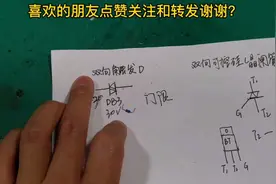 喜欢的朋友点赞关注和转发谢谢?
双向触发D
双向可控硅(晶闸管
DB3
30V
门限
T1
G
T2
BT
T1 T2 G